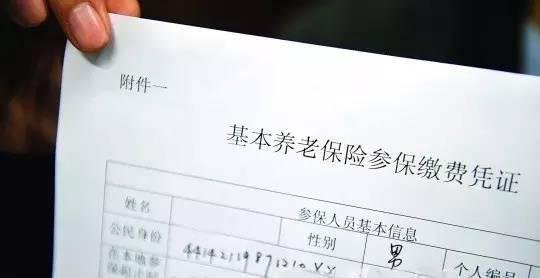 附件一
基本养老保险参保缴费凭证
参保人员基本信息
姓名 性别 男 个人编号
公民身份 44142119871210XX
在本地参